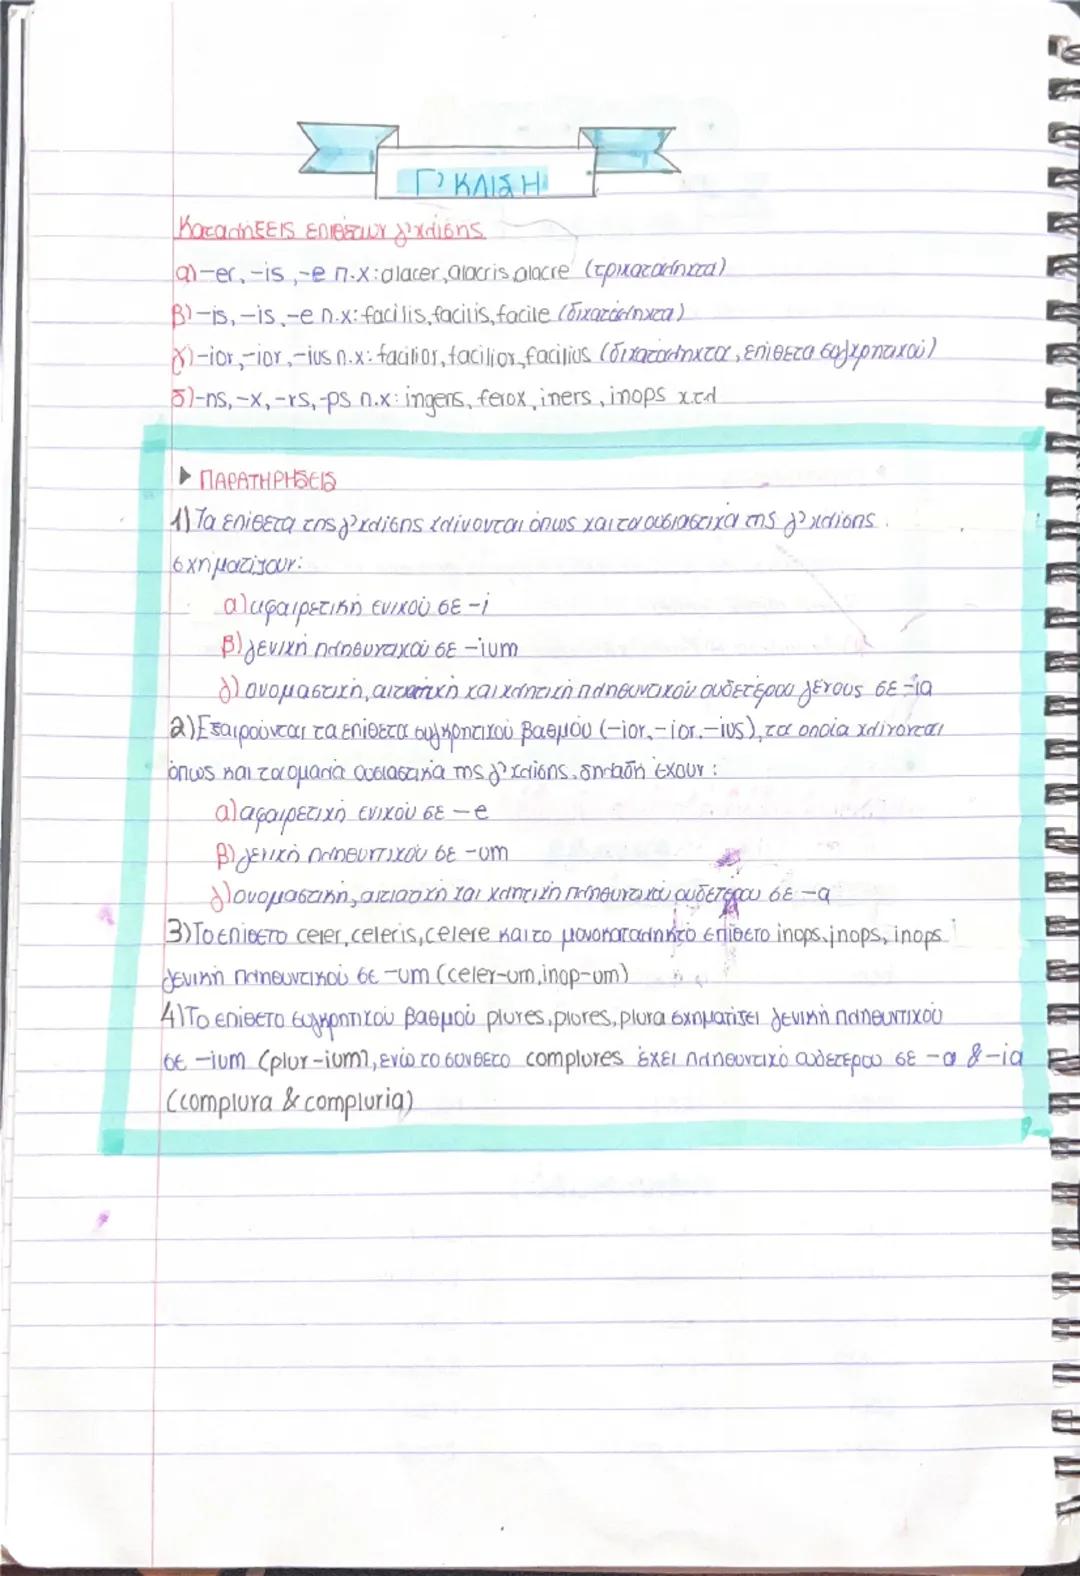 Γ' ΚΛΙΣΗ
Καταλήξεις επιθέτων γ' κλίσης
α) -er, -is, -e π.χ: alacer, alacris, alacre (τρικατάληκτα)
β) -is, -is, -e π.χ: facilis, facilis, facile (δικατάληκτα)
γ) -ior, -ior, -ius π.χ: facilior, facilior, facilius (δικατάληκτα, επίθετα συγκρητικού)
δ) -ns, -x, -rs, -ps π.χ: ingens, ferox, iners, inops κτλ
ΠΑΡΑΤΗΡΗΣΕΙΣ
1) Τα επίθετα της γ' κλίσης κλίνονται όπως και τα ουσιαστικά της γ' κλίσης.
σχηματίζουν:
α) αφαιρετική ενικού σε -i
β) γενική πληθυντικού σε -ium
γ) ονομαστική, αιτιατική και κλητική πληθυντικού ουδετέρου γένους σε -ia
2) Εξαιρούνται τα επίθετα συγκρητικού βαθμού (-ior, -ior, -ius), τα οποία κλίνονται
όπως και τα ομαλά ουσιαστικά της γ' κλίσης, δηλαδή έχουν:
α) αφαιρετική ενικού σε -e
β) γενική πληθυντικού σε -um
γ) ονομαστική, αιτιατική και κλητική πληθυντικού ουδετέρου σε -a
3) Το επίθετο celer, celeris, celere και το μονοκατάληκτο επίθετο inops, inops, inops
γενική πληθυντικού σε -um (celer-um, inop-um)
4) Το επίθετο συγκρητικού βαθμού plures, plures, plura σχηματίζει γενική πληθυντικού
σε -ium (plur-ium), ενώ το σύνθετο complures έχει πληθυντικό ουδετέρου σε -a & -ia
(complura & compluria)